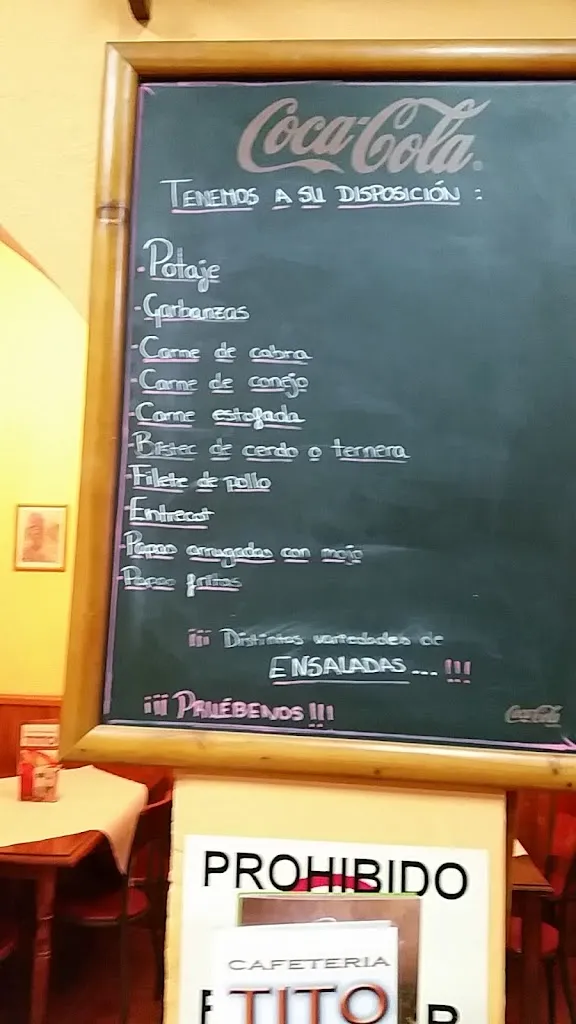 Coca-Cola
TENEMOS A SU DISPOSICIÓN :
- Potaje
- Garbanzas
- Carne de cabra
- Carne de conejo
- Carne estofada
- Bistec de cerdo o ternera
- Filete de pollo
- Entrecot
- Papas arrugadas con mojo
- Papas fritas
¡¡¡ Distintas variedades de
ENSALADAS...!!!
¡¡¡ PRUÉBENOS !!!
Coca-Cola
PROHIBIDO
CAFETERIA
TITO